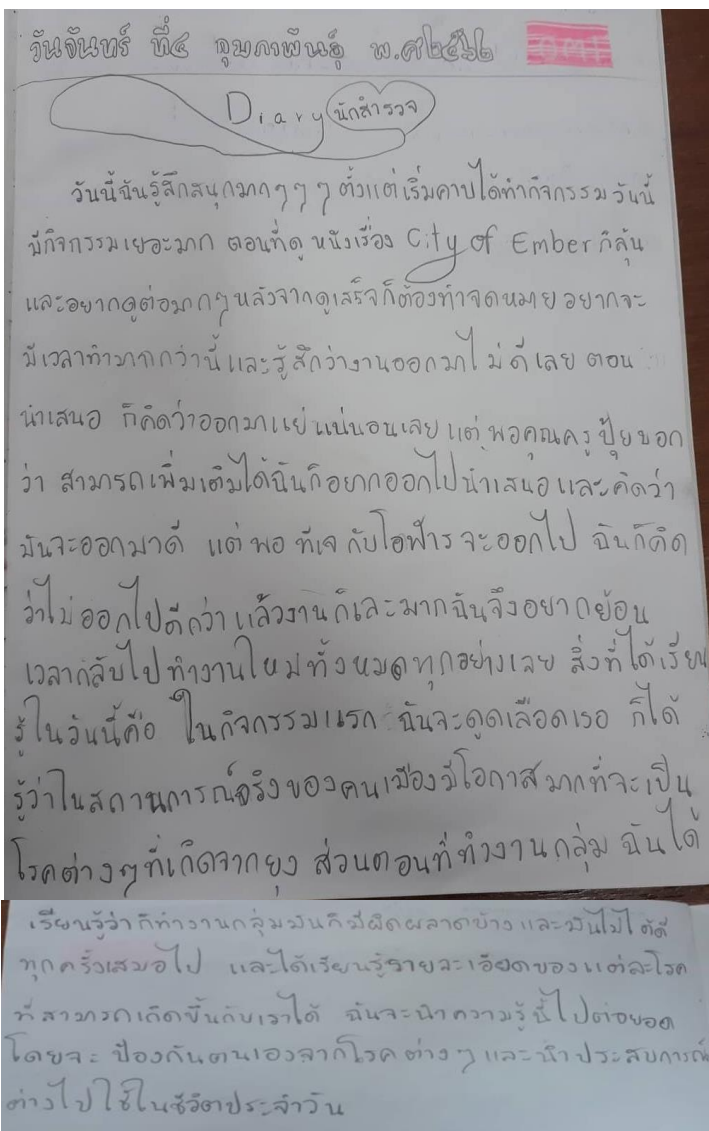 วันจันทร์ ที่๔ กุมภาพันธุ์ พ.ศ๒๕๖๒
Diary นักสำรวจ
วันนี้ฉันรู้สึกสนุกมากๆๆๆ ตั้งแต่เริ่มคาบได้ทำกิจกรรม วันนี้
มีกิจกรรมเยอะมาก ตอนที่ดู หนังเรื่อง City of Ember ก็ลุ้น
และอยากดูต่อมากๆหลังจากดูเสร็จก็ต้องทำจดหมาย อยากจะ
มีเวลาทำมากกว่านี้และรู้สึกว่างานออกมาไม่ดีเลย ตอน
นำเสนอ ก็คิดว่าออกมาแย่แน่นอนเลย แต่ พอคุณครูปุ้ยบอก
ว่า สามารถเพิ่มเติมได้ฉันก็อยากออกไปนำเสนอและคิดว่า
มันจะออกมาดี แต่ พอ ทีเจ กับโอฬาร จะออกไป ฉันก็คิด
ว่าไม่ออกไปดีกว่า แล้วงานก็เละมากฉันจึงอยากย้อน
เวลากลับไปทำงานใหม่ทั้งหมดทุกอย่างเลย สิ่งที่ได้เรียน
รู้ในวันนี้คือ ในกิจกรรมแรก ฉันจะดูดเลือดเธอ ก็ได้
รู้ว่าในสถานการณ์จริงของคนเมืองมีโอกาสมากที่จะเป็น
โรคต่างๆที่เกิดจากยุง ส่วนตอนที่ทำงานกลุ่ม ฉันได้
เรียนรู้ว่าก็ทำงานกลุ่มมันก็มีผิดผลาดบ้าง และมันไม่ได้ดี
ทุกครั้งเสมอไป และได้เรียนรู้รายละเอียดของแต่ละโรค
ที่สามารถเกิดขึ้นกับเราได้ ฉันจะนำความรู้นี้ไปต่อยอด
โดยจะ ป้องกันตนเองจากโรคต่างๆ และนำประสบการณ์
ต่างไปใช้ในชีวิตประจำวัน